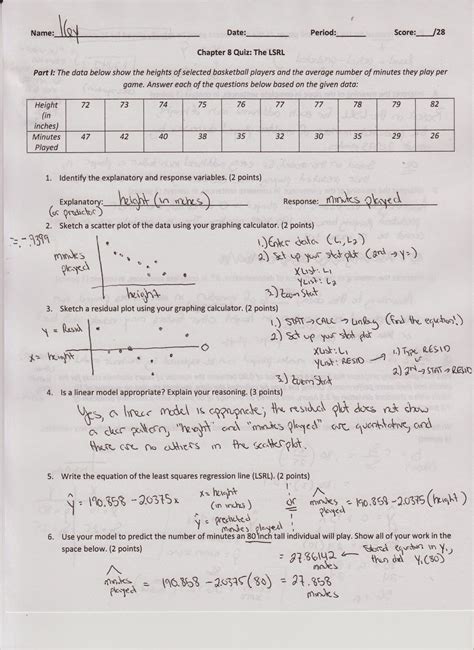 Name: Key Date: Period: Score: /28
Chapter 8 Quiz: The LSRL
Part I: The data below show the heights of selected basketball players and the average number of minutes they play per
game. Answer each of the questions below based on the given data:
Height (in inches) 72 73 74 75 76 77 77 78 78 79 82
Minutes Played 47 42 40 38 35 32 30 35 29 28 26
1. Identify the explanatory and response variables. (2 points)
Explanatory: height (in inches) Response: minutes played
(or predictor)
2. Sketch a scatter plot of the data using your graphing calculator. (2 points)
r = -.9399
minutes played
height
1.) Enter data (L1, L2)
2) Set up your stat plot (2nd → y=)
XList: L1
YList: L2
3.) Zoom Stat
3. Sketch a residual plot using your graphing calculator. (2 points)
y = Resid
x = height
0
1.) STAT → CALC → LinReg (Find the equation!)
2) Set up your stat plot
XList: L1
YList: RESID
1) Type RESID
or
2) 2nd → STAT → RESID
3.) Zoom Stat
4. Is a linear model appropriate? Explain your reasoning. (3 points)
Yes, a linear model is appropriate; the residual plot does not show
a clear pattern, "height" and "minutes played" are quantitative, and
there are no outliers in the scatterplot.
5. Write the equation of the least squares regression line (LSRL). (2 points)
ŷ = 190.858 - 2.0375x
x = height (in inches)
ŷ = predicted minutes played
or minutes played = 190.858 - 2.0375(height)
6. Use your model to predict the number of minutes an 80 inch tall individual will play. Show all of your work in the
space below. (2 points)
= 27.86142 ← Stored equation in Y1,
then did Y1(80)
minutes played = 190.858 - 2.0375(80) = 27.858 minutes